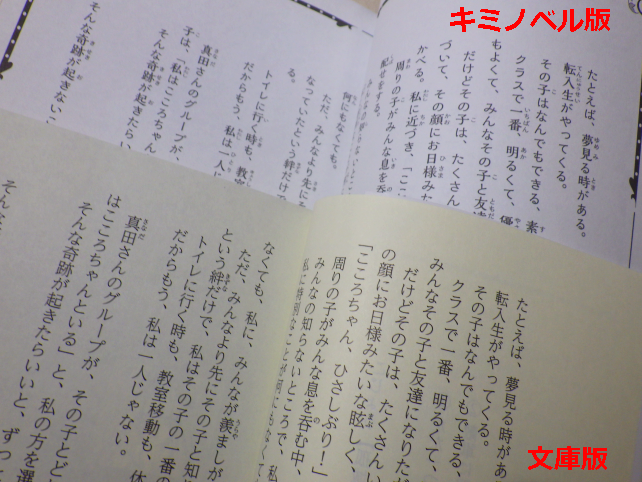 キミノベル版
たとえば、夢見る時がある。
転入生がやってくる。
その子はなんでもできる、素
クラスで一番、明るくて、優
もよくて、みんなその子と友達
だけどその子は、たくさん
づいて、その顔にお日様みた
かべる。私に近づき、「ここ
周りの子がみんな息を呑
何にもなくても。
ただ、みんなより先に
なっていたという絆だけで
る。
トイレに行く時も、教室
だからもう、私は一人
真田さんのグループが、
子は、「私はこころちゃん
そんな奇跡が起きたらい
そんな奇跡が起きないこ
たとえば、夢見る時があ
転入生がやってくる。
その子はなんでもできる、
クラスで一番、明るくて、
みんなその子と友達になりた
だけどその子は、たくさんい
の顔にお日様みたいな眩しく、
「こころちゃん、ひさしぶり！」
周りの子がみんな息を呑む中、
みんなの知らないところで、私
私に特別なことが何にもなくて
なくても、私に、みんなが羨まし
ただ、みんなより先にその子と知
という絆だけで、私はその子の一番の
トイレに行く時も、教室移動も、休
だからもう、私は一人じゃない。
真田さんのグループが、その子とど
はこころちゃんといる」と、私の方を選
そんな奇跡が起きたらいいと、ずっ
文庫版